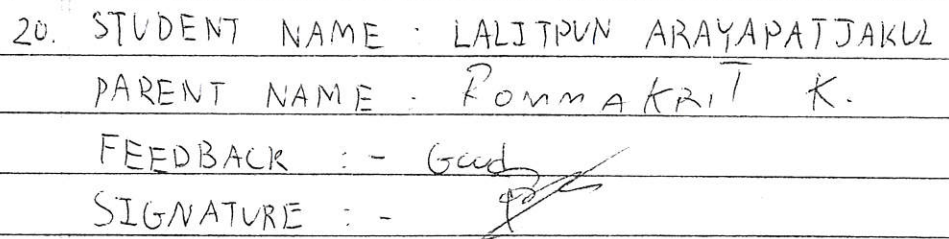 20. STUDENT NAME : LALITPUN ARAYAPATJAKUL
PARENT NAME : Pommakrit K.
FEEDBACK :- Good
SIGNATURE :-